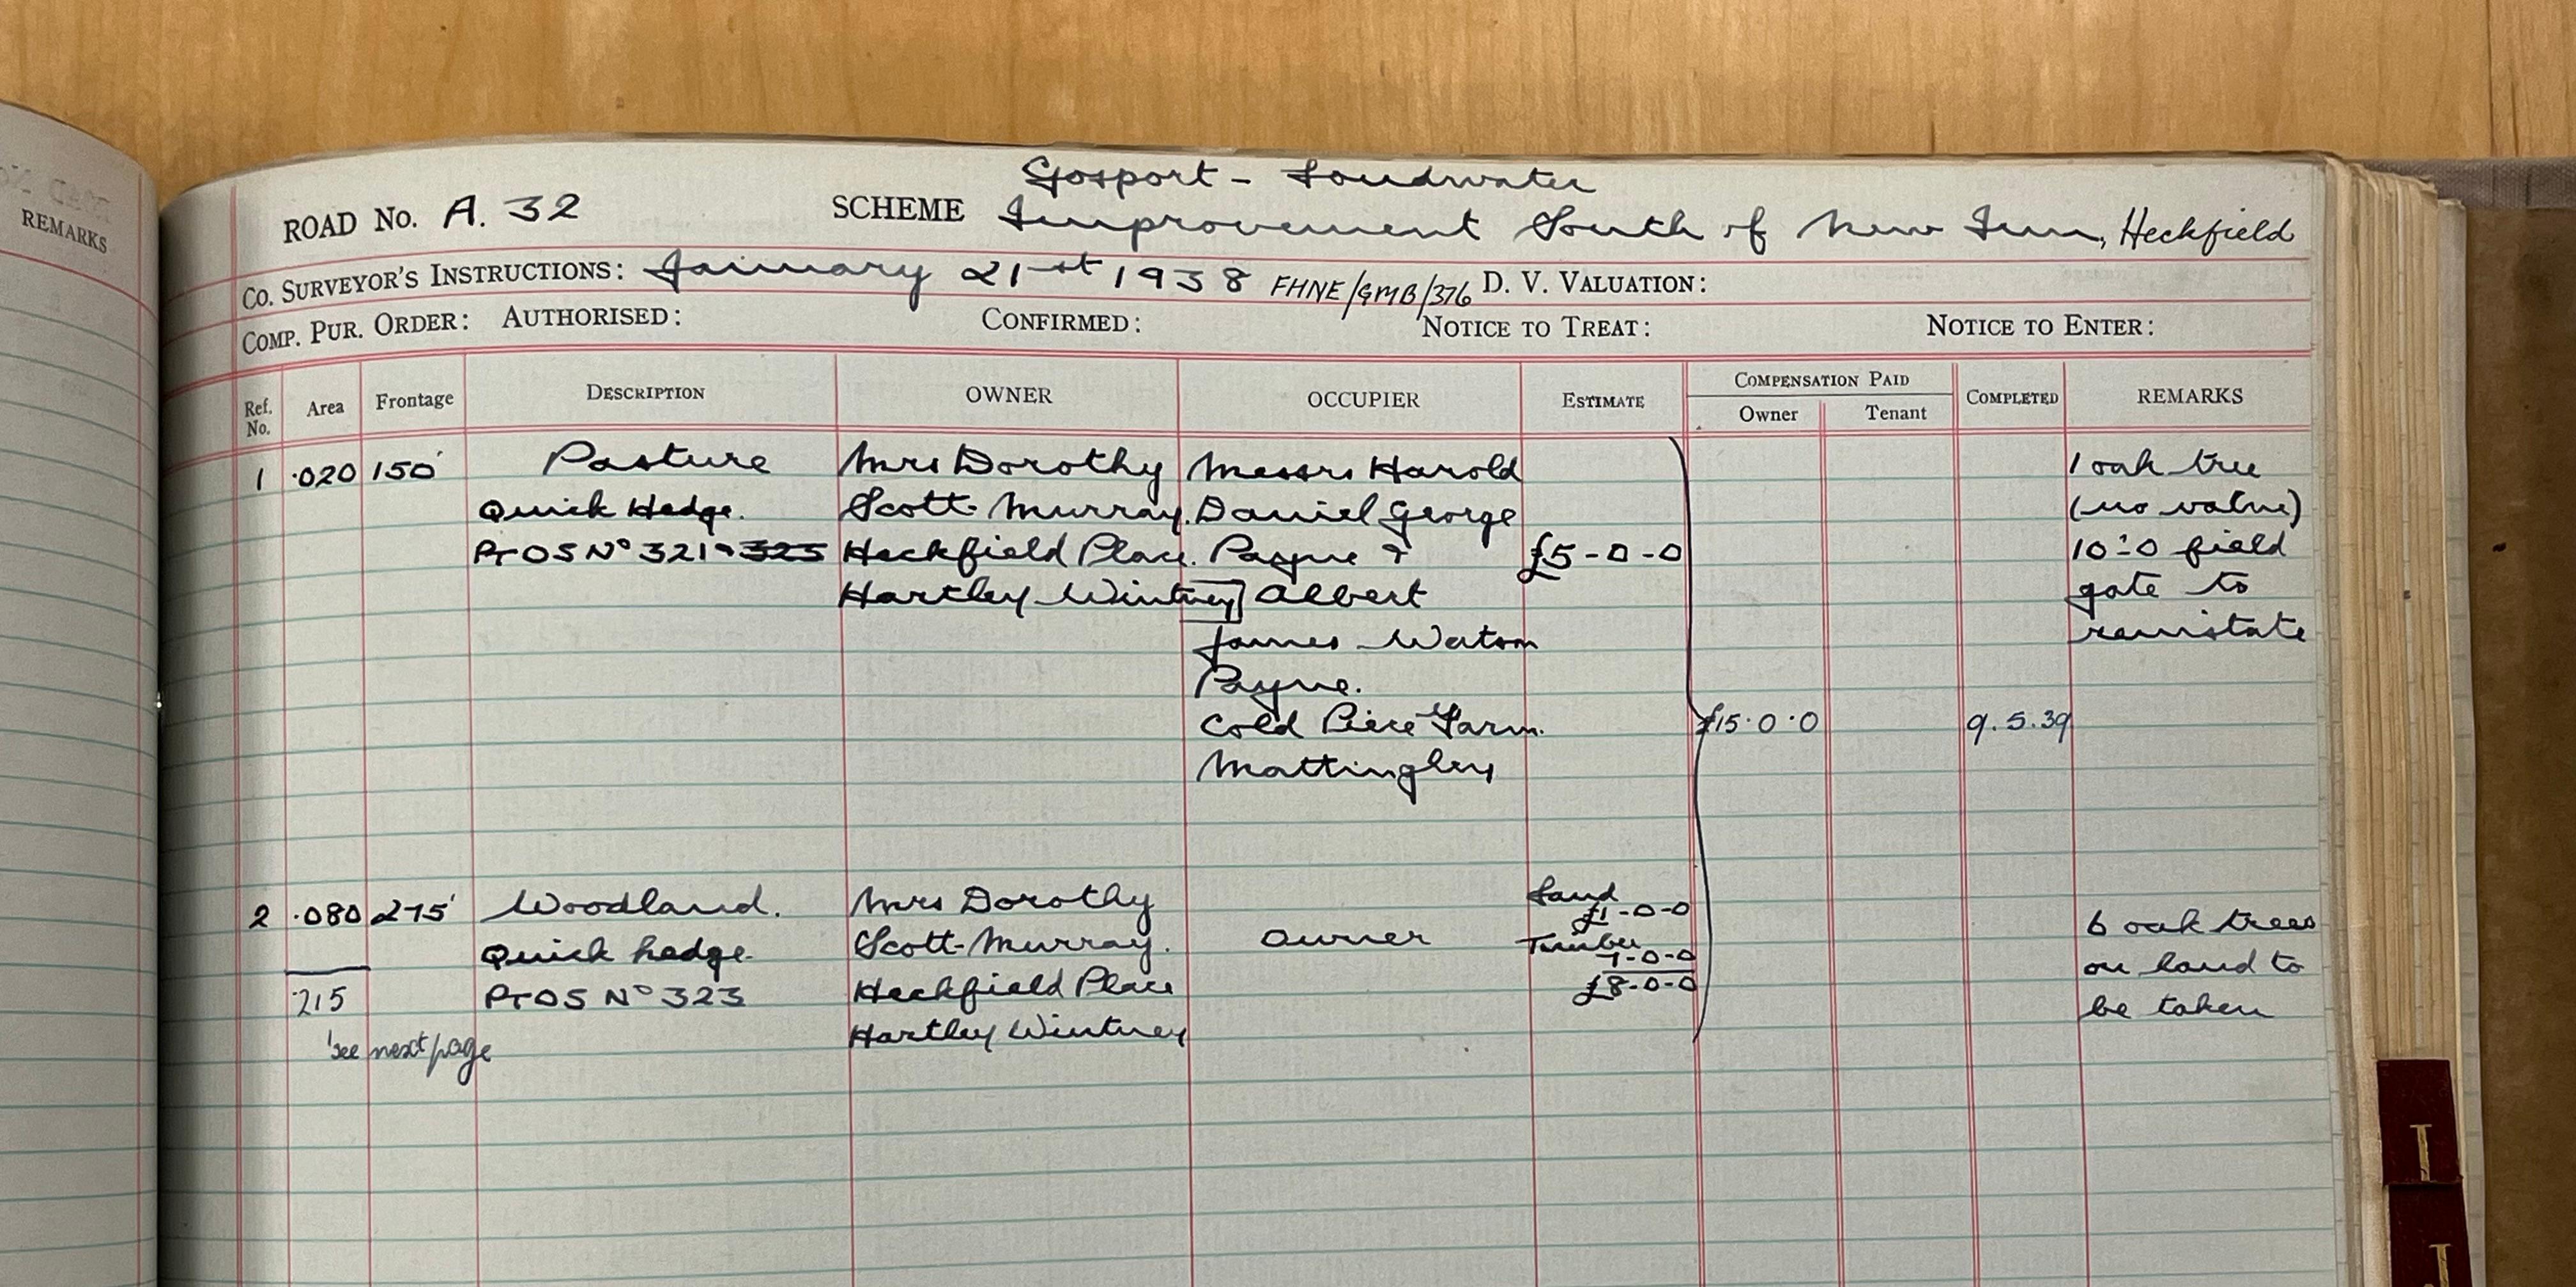 REMARKS
Gosport - Loudwater
ROAD No. A. 32 SCHEME Improvement South of New Inn, Heckfield
Co. Surveyor's Instructions: January 21st 1938 FHNE/GMB/376 D. V. Valuation:
Comp. Pur. Order: Authorised: Confirmed: Notice to Treat: Notice to Enter:
Ref. No. Area Frontage Description OWNER OCCUPIER Estimate Compensation Paid Owner Tenant Completed REMARKS
1 .020 150' Pasture Mrs Dorothy Messrs Harold 1 oak tree
Quick Hedge. Scott-Murray. Daniel George (no value)
Pt OS No 321 & 323 Heckfield Place. Payne & £5-0-0 10'-0 field
Hartley Wintney Albert gate to
James Watson reinstate
Payne.
Cold Piece Farm. £15.0.0 9.5.39
Mattingley
2 .080 275' Woodland. Mrs Dorothy Land £1-0-0 6 oak trees
Quick hedge. Scott-Murray. Owner Timber 7-0-0 on land to
.215 Pt OS No 323 Heckfield Place £8-0-0 be taken
see next page Hartley Wintney
I
J